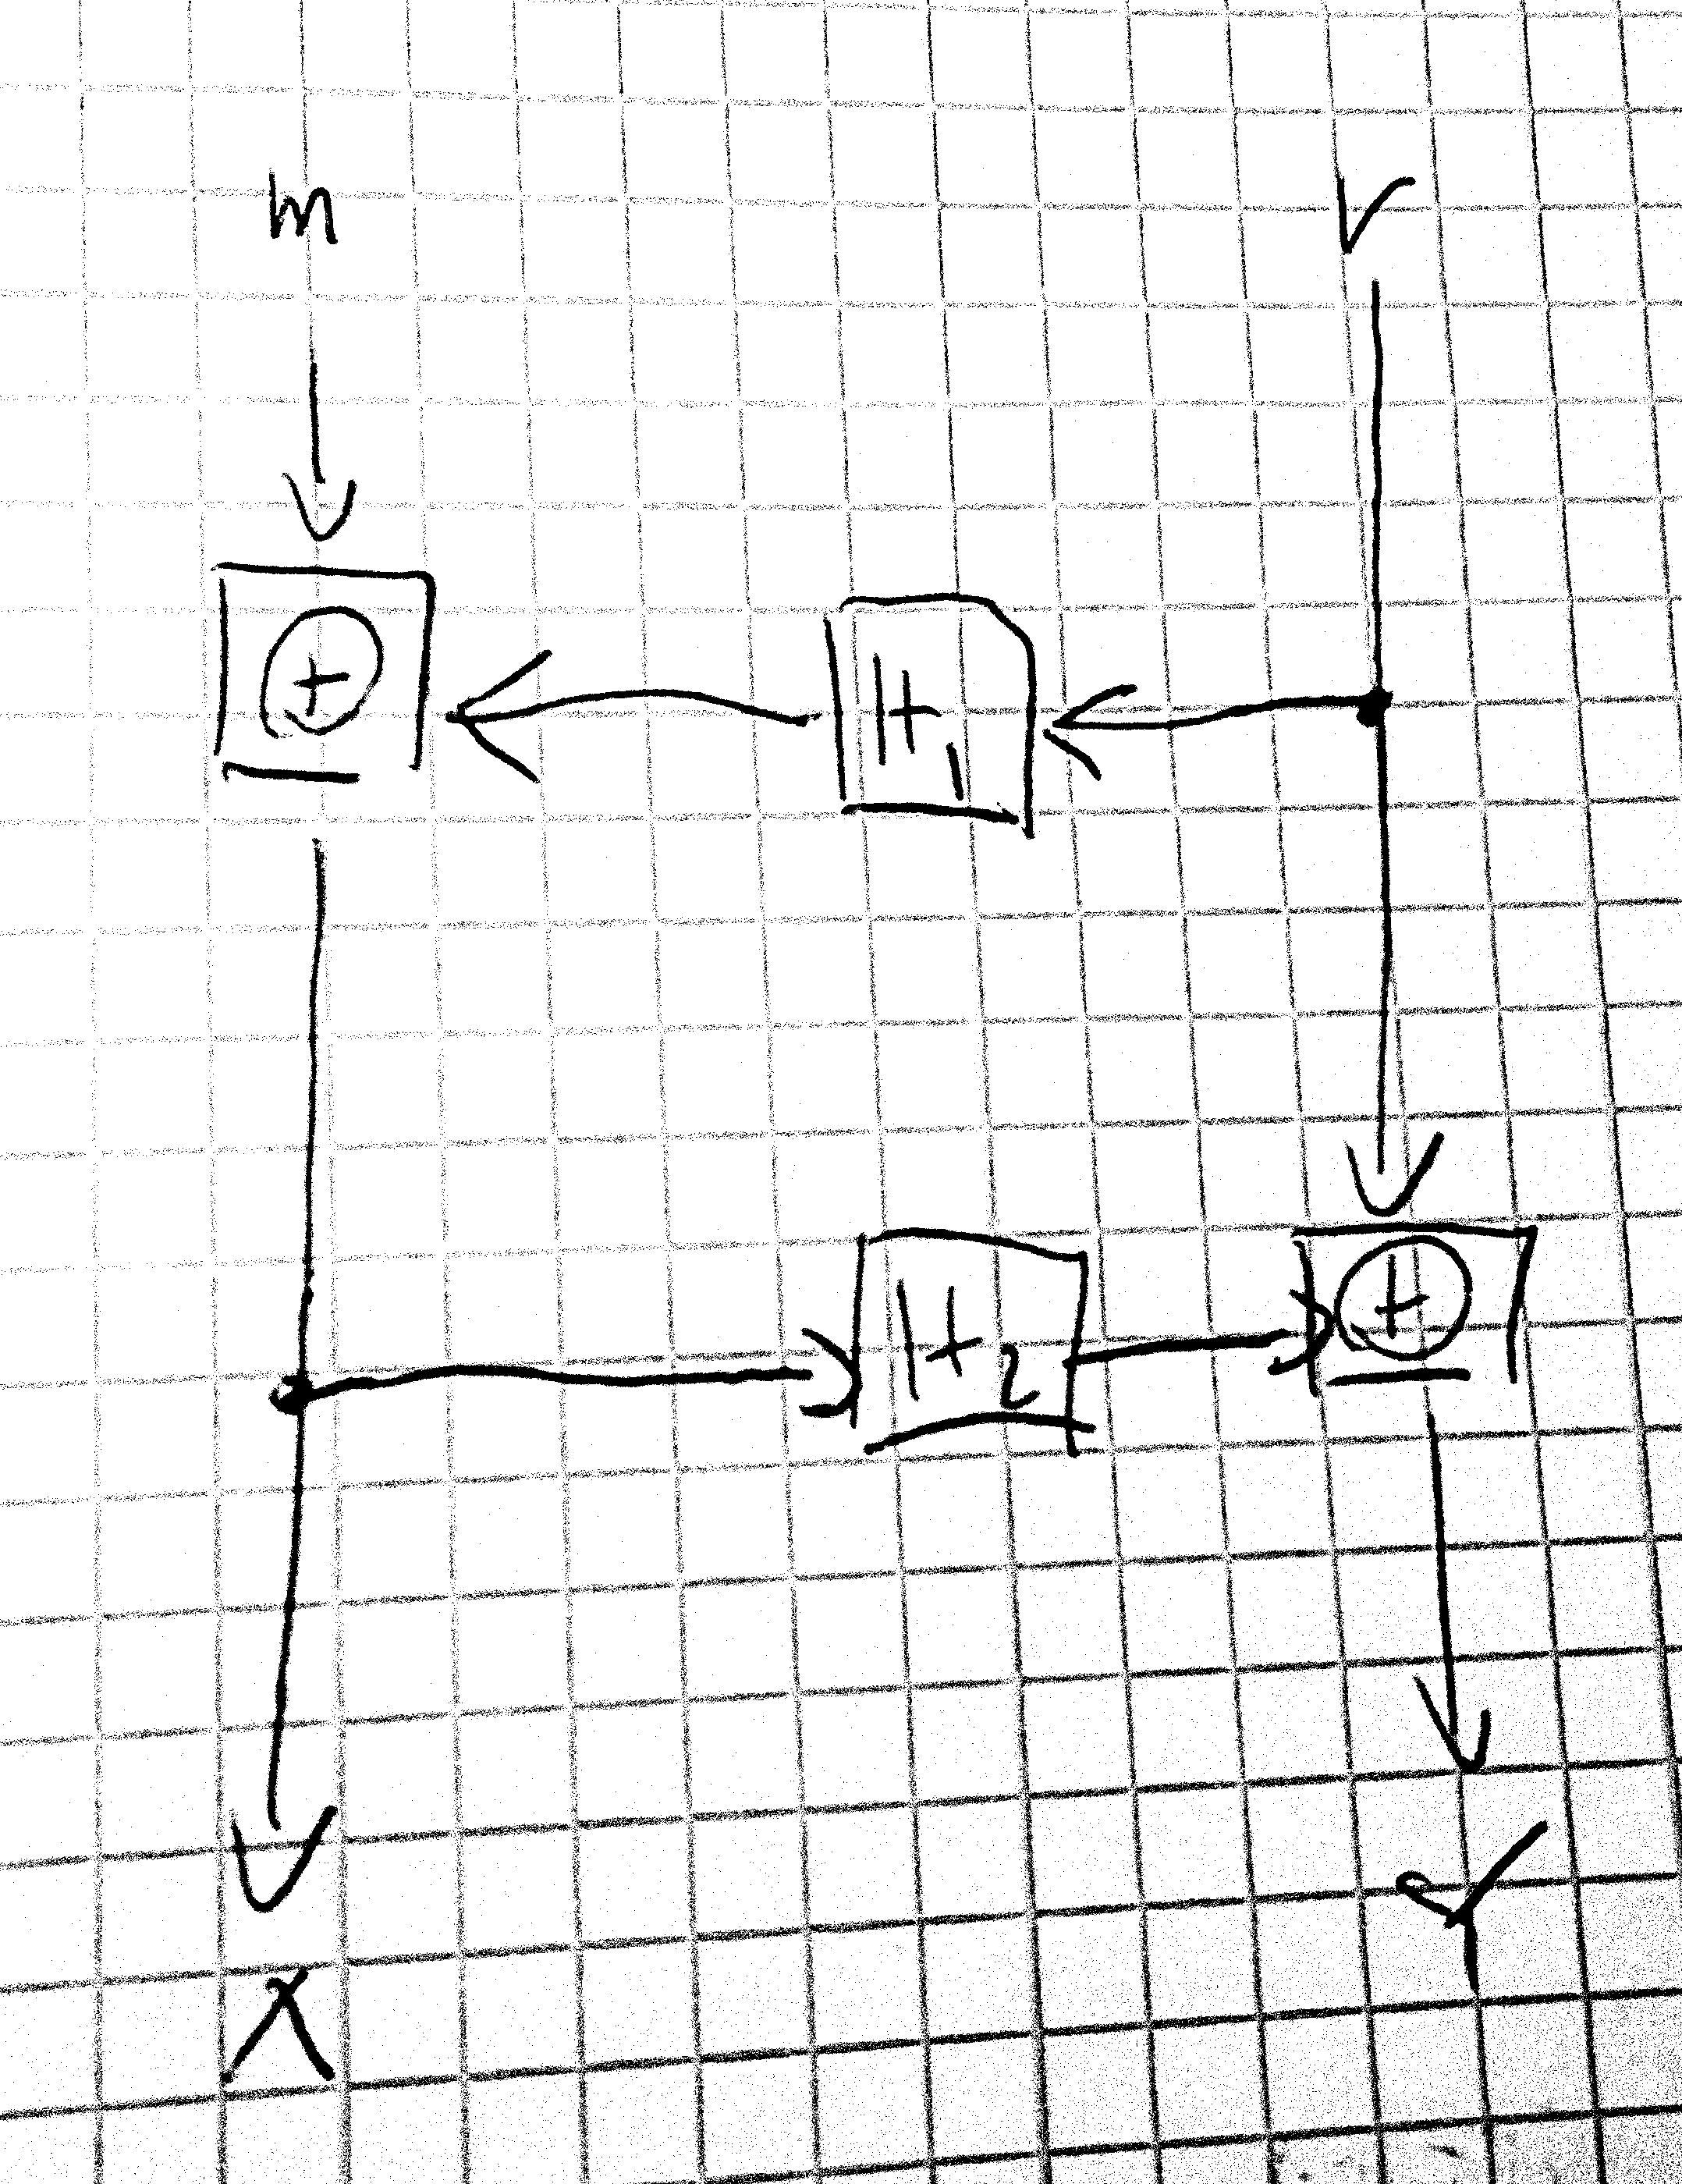 m r
⊕ H₁
H₂ ⊕
X Y